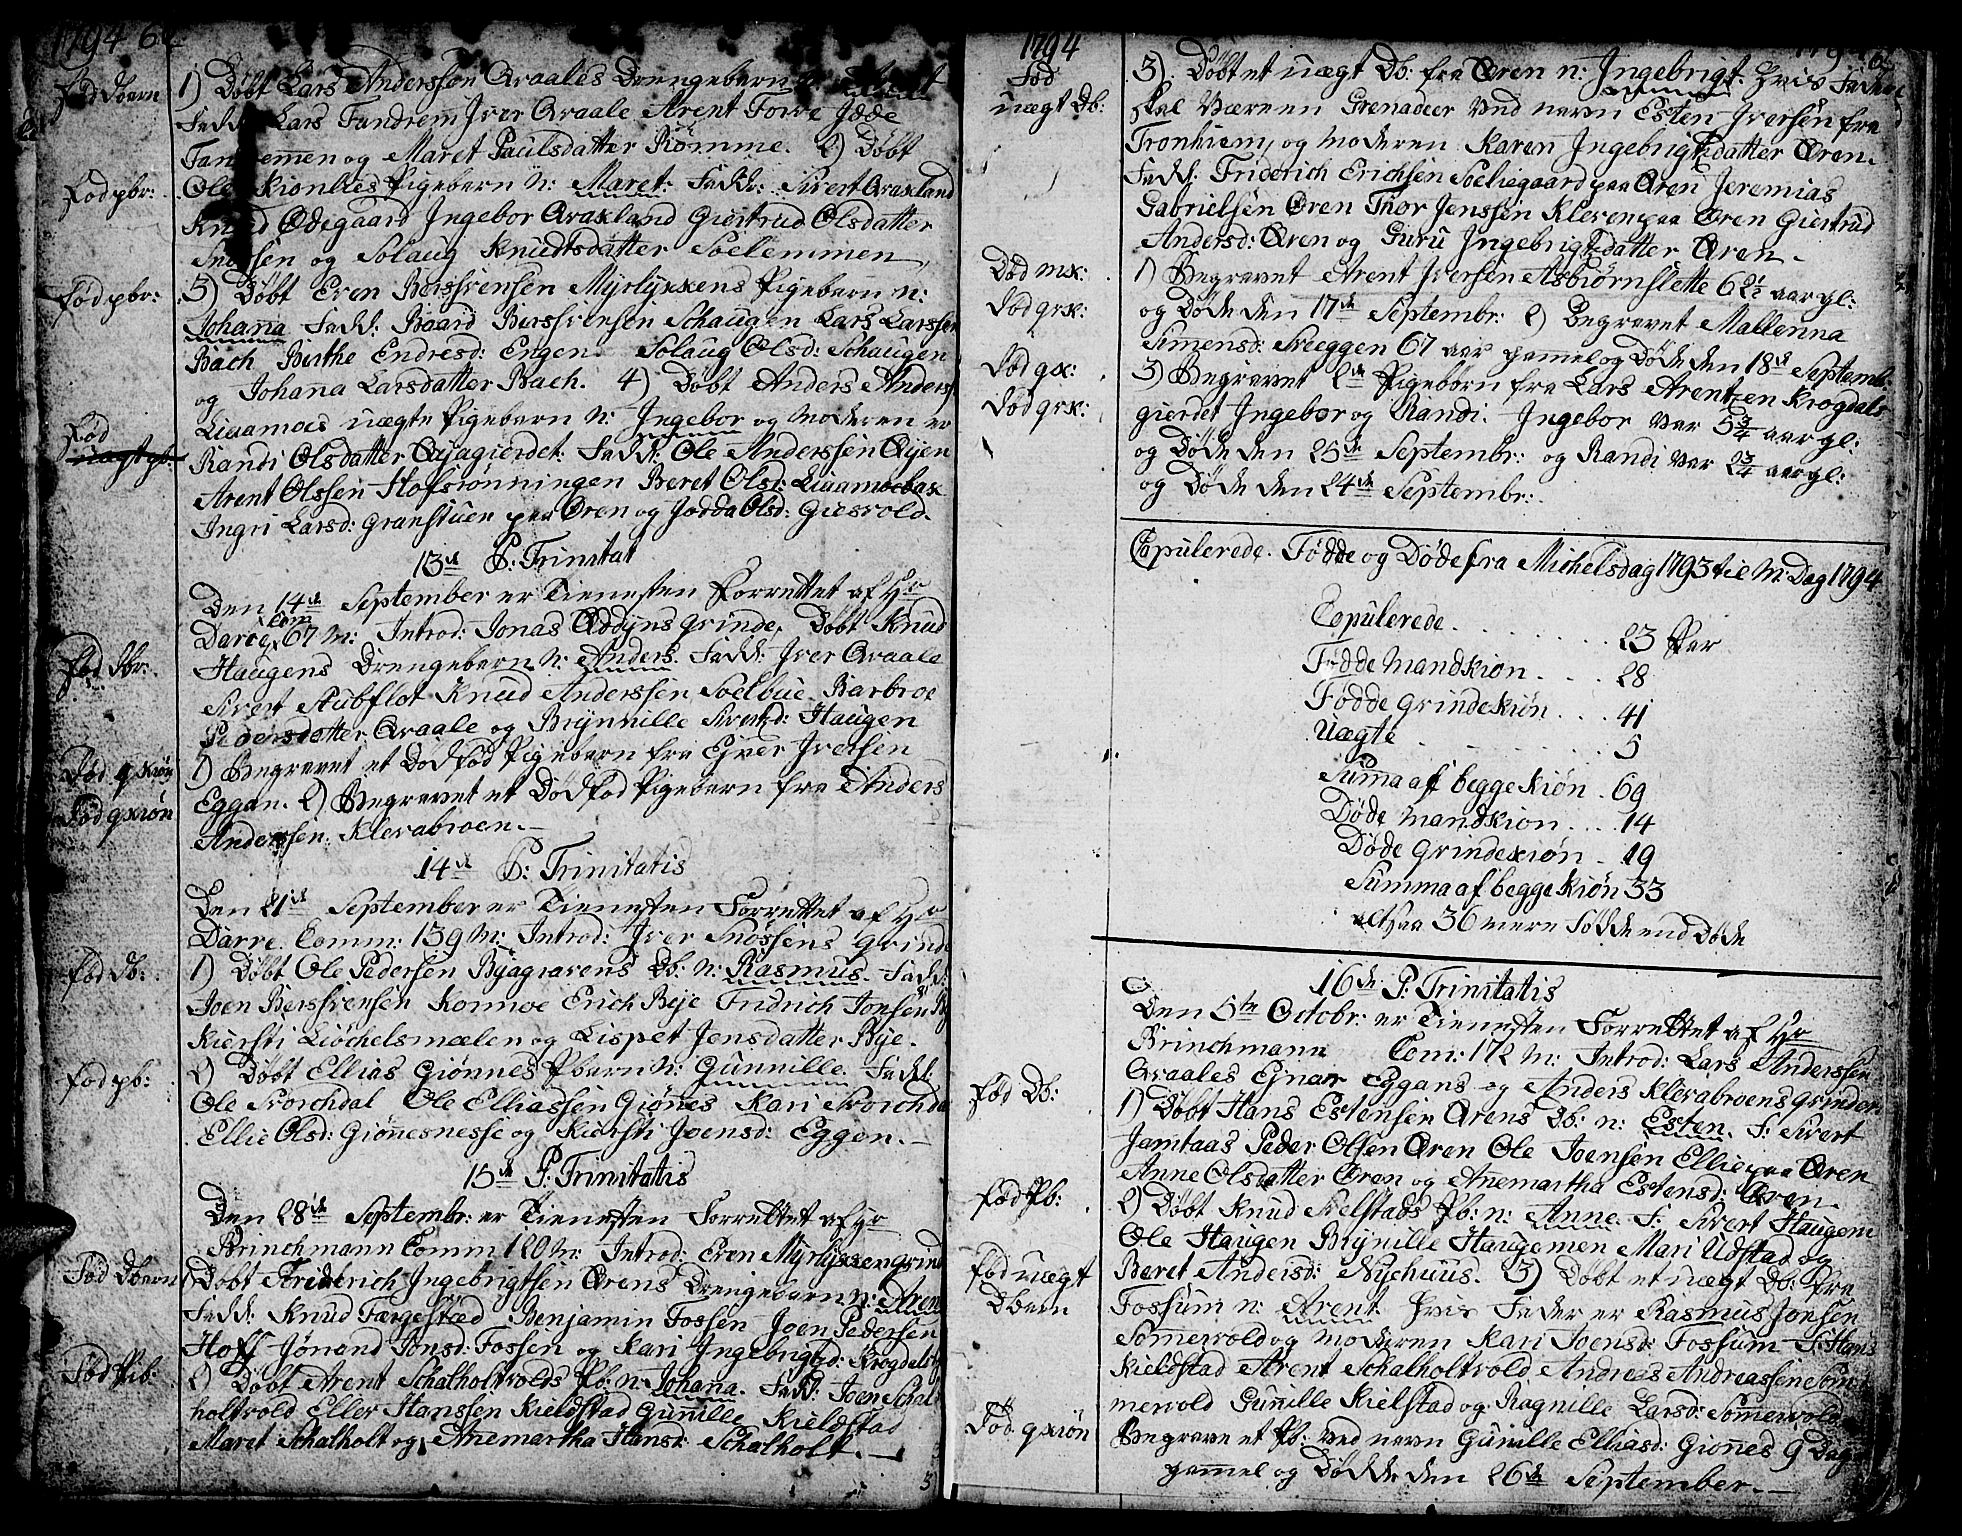 1794 6
Fød Dbarn
1) Døbt Lars Anderssøn Qvaales Drengebarn
Fadd: Lars Tandrem Iver Qvaale Arent Forve Jdde
Tandremen og Maret Paulsdatter Rømme. 2) Døbt
Fød pbr:
Ole Kionlies Pigebarn N: Maret. Fadd: Sivert Qraxland
Knud Ødegaard Ingebor Qraxland Giertrud Olsdatter
Snossen og Solaug Knudtsdatter Soelemmen
Fød pbr:
3) Døbt Eren Berssvensen Myrlykkens Pigebarn N:
Johana Fadd: Baard Berssvensen Schaugen Lars Larssen
Bach Berthe Endresd: Engen Solaug Olsd: Schaugen
og Johana Larsdatter Bach. 4) Døbt Anders Anders:
Fød
uægt pb:
Liaamoes uægte Pigebarn N: Ingebor og Moderen er
Randi Olsdatter Qyagierdet. Fadd: Ole Anderssen Qyen
Arent Olssen Hofsrønningen Beret Olsd: Liaamoebak
Ingri Larsd: Granstuen paa Øren og Jødda Olsd: Giesvold.
13de P: Trinitat
Den 14de September er Tienesten Forrettet af Hr
Darre, Com 67 M: Introd: Jonas Oddyns Qvinde, Døbt Knud
Fød Dbr:
Haugens Drengebarn N: Anders. Fadd: Iver Qvaale
Sivert Stubflot Knud Anderssen Soelbue Barbroe
Pedersdatter Qvaale og Brynnille Sivertsd: Haugen
Død qkiøn
1) Begravet et Dødfød Pigebarn fra Ejner Iversen
Død qkiøn
Eggan. 2) Begravet et Dødfød Pigebarn fra Anders
Anderssen Klevabroen.
14de P: Trinitatis
Den 21de September er Tienesten Forrettet af Hr
Darre. Comm: 139 M: Introd: Iver Snøssens Qvinde
Fød Db:
1) Døbt Ole Pedersen Byagravens Db: N: Rasmus. Fadd:
Joen Berssvensen Kormoe Erich Beje Fridrich Jonsen
Kiersti Liøchelsmælen og Lispet Jensdatter Bye.
Fød pb:
2) Døbt Ellias Giønnes Pbarn N: Gunnille. Fadd:
Ole Storchdal Ole Elliassen Giønes Kari Storchdal
Ellie Olsd: Giønnesnesse og Kiersti Joensd: Eggen.
15de P: Trinitatis
Den 28de Septembr: er Tienesten Forrettet af Hr
Brinchmann Comm 120 M: Introd: Eren Myrlykken Qvind
Fød Dbarn
Døbt Friderich Ingebrigtsen Ørens Drengebarn N: Aren
Fadd: Knud Færgestad Benjamin Fossen Joen Pedersen
Hoff Jønand Jonsd: Fossen og Kari Ingebrigtsd: Krogdals
Fød Pib:
2) Døbt Arent Schalholtvolds Pb: N: Johana. Fadd: Joen Schal
holtvold Eller Hanssen Kieldstad Gunnille Kieldstad
Maret Schalholt og Anemartha Hansd: Schalholt.
1794
Fød
uægt Db:
3) Døbt et uægt Db: fra Øren N: Ingebrigt. Hvis Fader
skal Være en Grenadeer Ved navn Esten Iversen fra
Tronhiem, og Moderen Karen Ingebrigtsdatter Øren.
Fadd: Friderich Erichsen Soeliegaard paa Øren Jeremias
Gabrielsen Øren Thor Jenssen Kleven paa Øren Giertrud
Andersd: Øren og Guru Ingebrigtsdatter Øren.
Død mk:
1) Begravet Arent Iversen Asbiørnslette 6½ aar gl:
Død qvk:
og Døde den 17de Septembr: 2) Begravet Mallenna
Simensd: Sveggen 67 aar gammel og Døde den 18de Septemb:
Død qk:
3) Begravet 2de Pigebørn fra Lars Arentzen Krogdals
Død qvk:
gierdet Ingebor og Randi. Ingebor var 5¾ aar gl:
og Døde den 25de Septembr: og Randi var 2¾ aar gl:
og Døde den 24de Septembr:
Copulerede. Fødde og Døde fra Michelsdag 1793 til M: Dag 1794
Copulerede . . . . . . . 23 Par
Fødde Mandkion . . . . 28
Fødde Qvindekiøn . . . 41
Uægte . . . . . . . 5
Summa af begge kiøn . 69
Døde Mandkion . . . . 14
Døde Qvindekiøn . 19
Summa af begge kiøn 33
altsaa 36 mere Fødde end Døde
16de P: Trinitatis
Den 5te Octobr: er Tienesten Forrettet af Hr
Brinchmann Com: 172 M: Introd: Lars Anderssen
Qvaales Ejnar Eggans og Anders Klevabroens Qvinder
Fød Db:
1) Døbt Hans Estensen Ørens Db: N: Esten. F: Sivert
Jamtaas Peder Olsen Øren Ole Joensen Ellie paa Øren
Anne Olsdatter Øren og Anemartha Estensd: Øren
Fød Pb:
2) Døbt Knud Kielstads Pb: N: Anne. F: Sivert Haugen
Ole Haugen Brynille Haugemen Mari Udstad og
Fød uægt
Dbarn
Beret Andersd: Nyehuus. 3) Døbt et uægt Db: fra
Fossum N: Arent. Hvis Fader er Rasmus Jonsen
Somervold og Moderen Kari Joensd: Fossum F: Hans
Kieldstad Arent Schalholtvold Andreas Andreassen Som
mervold Gunille Kielstad og Ragnille Larsd: Somervold
Død qkiøn
Begravet et Pb: Ved navn Gunille Elliasd: Gionnes 9 Dage
gammel og Døde den 26de September.